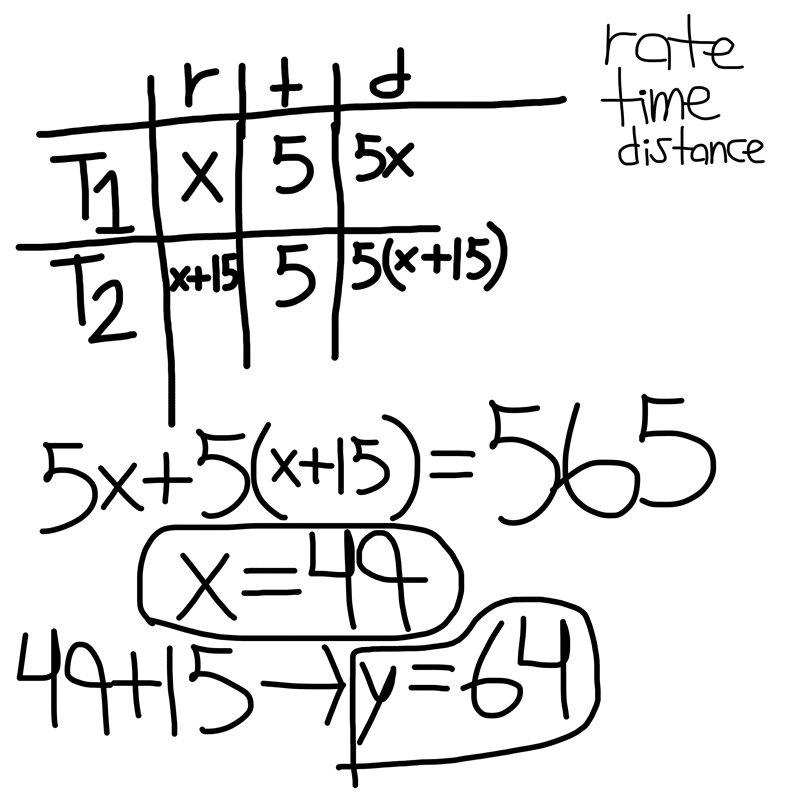 r t d
T1 x 5 5x
T2 x+15 5 5(x+15)
rate
time
distance
5x+5(x+15)=565
x=49
49+15→y=64